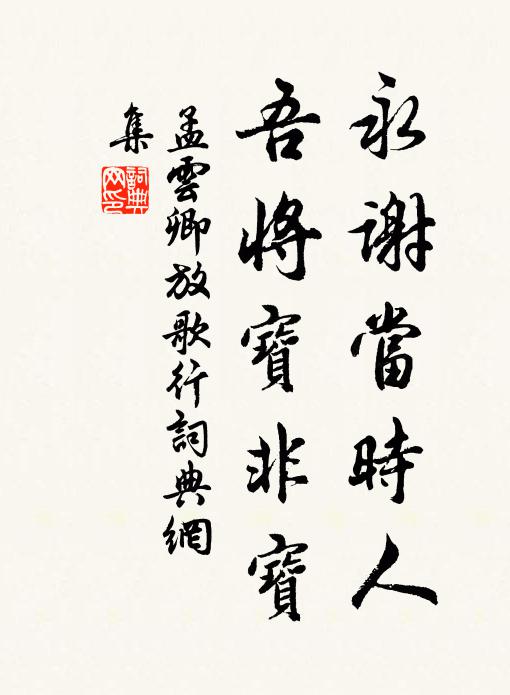 永謝當時人
吾將寶非寶
孟雲卿放歌行詞典網
集
詞典
网印